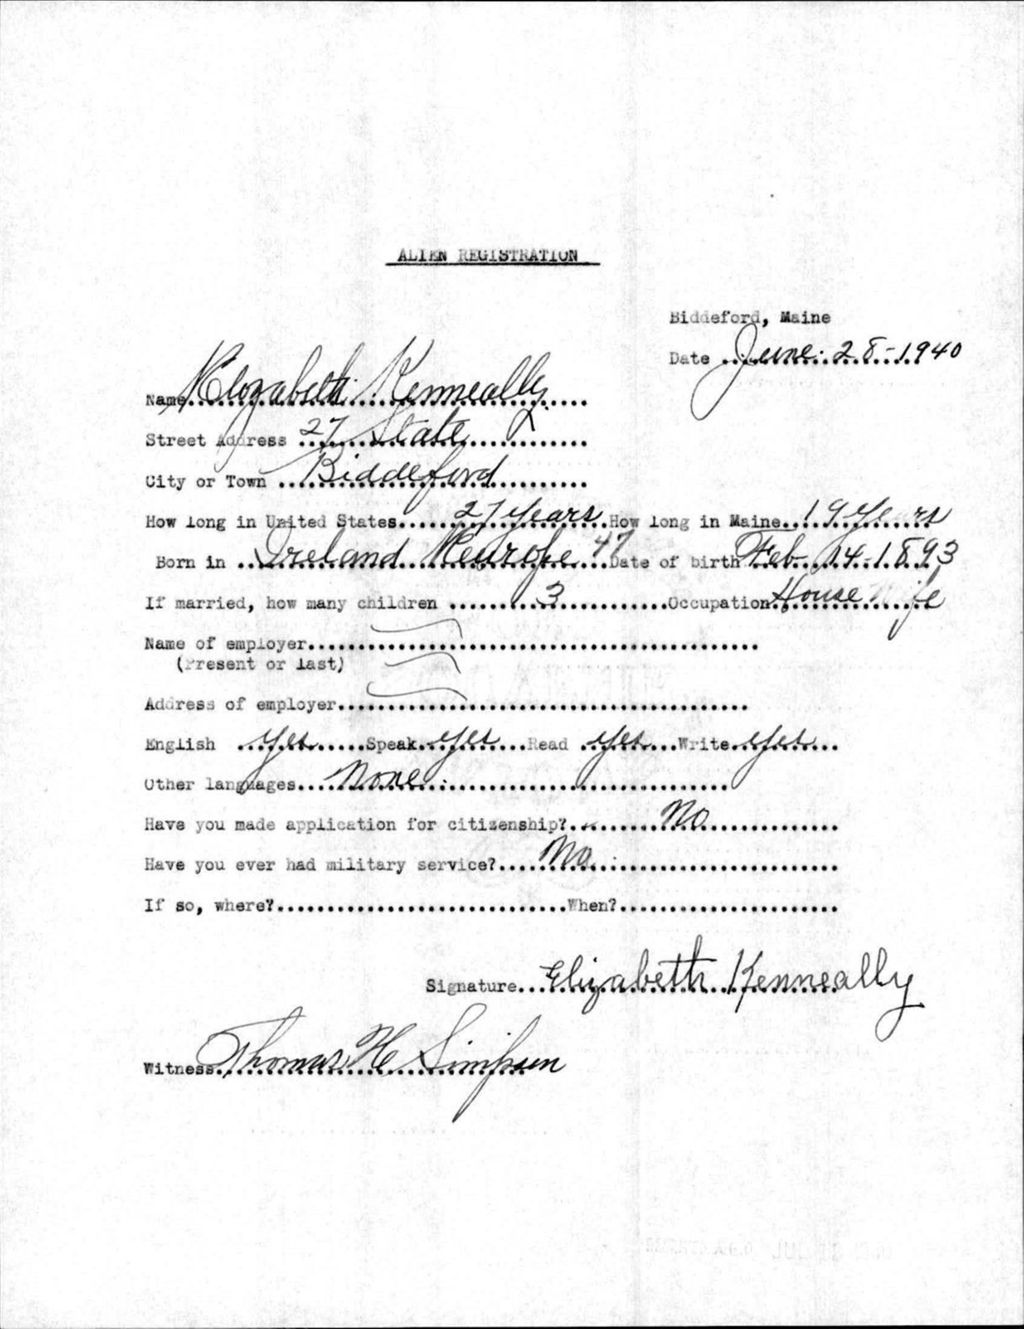 ALIEN REGISTRATION
Biddeford, Maine
Date June 28-1940
Name Elizabeth Kenneally
Street Address 27 State
City or Town Biddeford
How long in United States 27 years How long in Maine 19 years
Born in Ireland 47 Date of birth Feb 14-1893
If married, how many children 3 Occupation House Wife
Name of employer
(Present or last)
Address of employer
English yes Speak yes Read yes Write yes
Other languages None
Have you made application for citizenship? No
Have you ever had military service? No
If so, where? When?
Signature Elizabeth Kenneally
Witness Thomas H Simpson